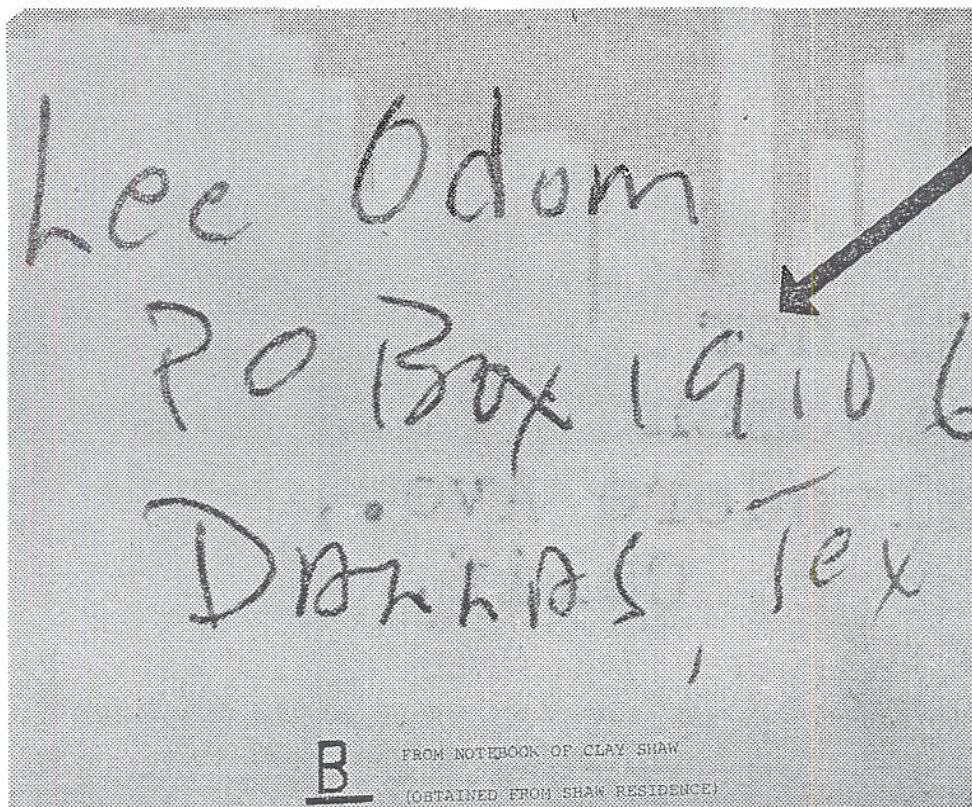 Lee Odom
PO Box 19106
Dallas, Tex
B FROM NOTEBOOK OF CLAY SHAW
(OBTAINED FROM SHAW RESIDENCE)